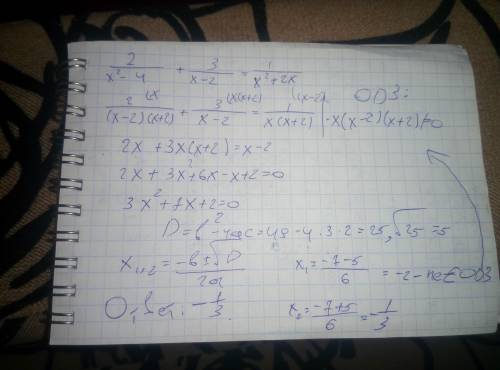 2/(x²-4) + 3/(x-2) = 1/(x²+2x)
2^(x/(x-2)(x+2) + 3^(x(x+2)/(x-2) = 1^(x-2)/x(x+2) | ·x(x-2)(x+2)≠0 ОДЗ:
2x + 3x(x+2) = x-2
2x + 3x²+6x-x+2=0
3x²+7x+2=0
D=b²-4ac=49-4·3·2=25, √25=5
x₁,₂ = (-b±√D)/2a x₁=(-7-5)/6 = -2 - не ∈ ОДЗ
Ответ: -1/3. x₂=(-7+5)/6=-1/3